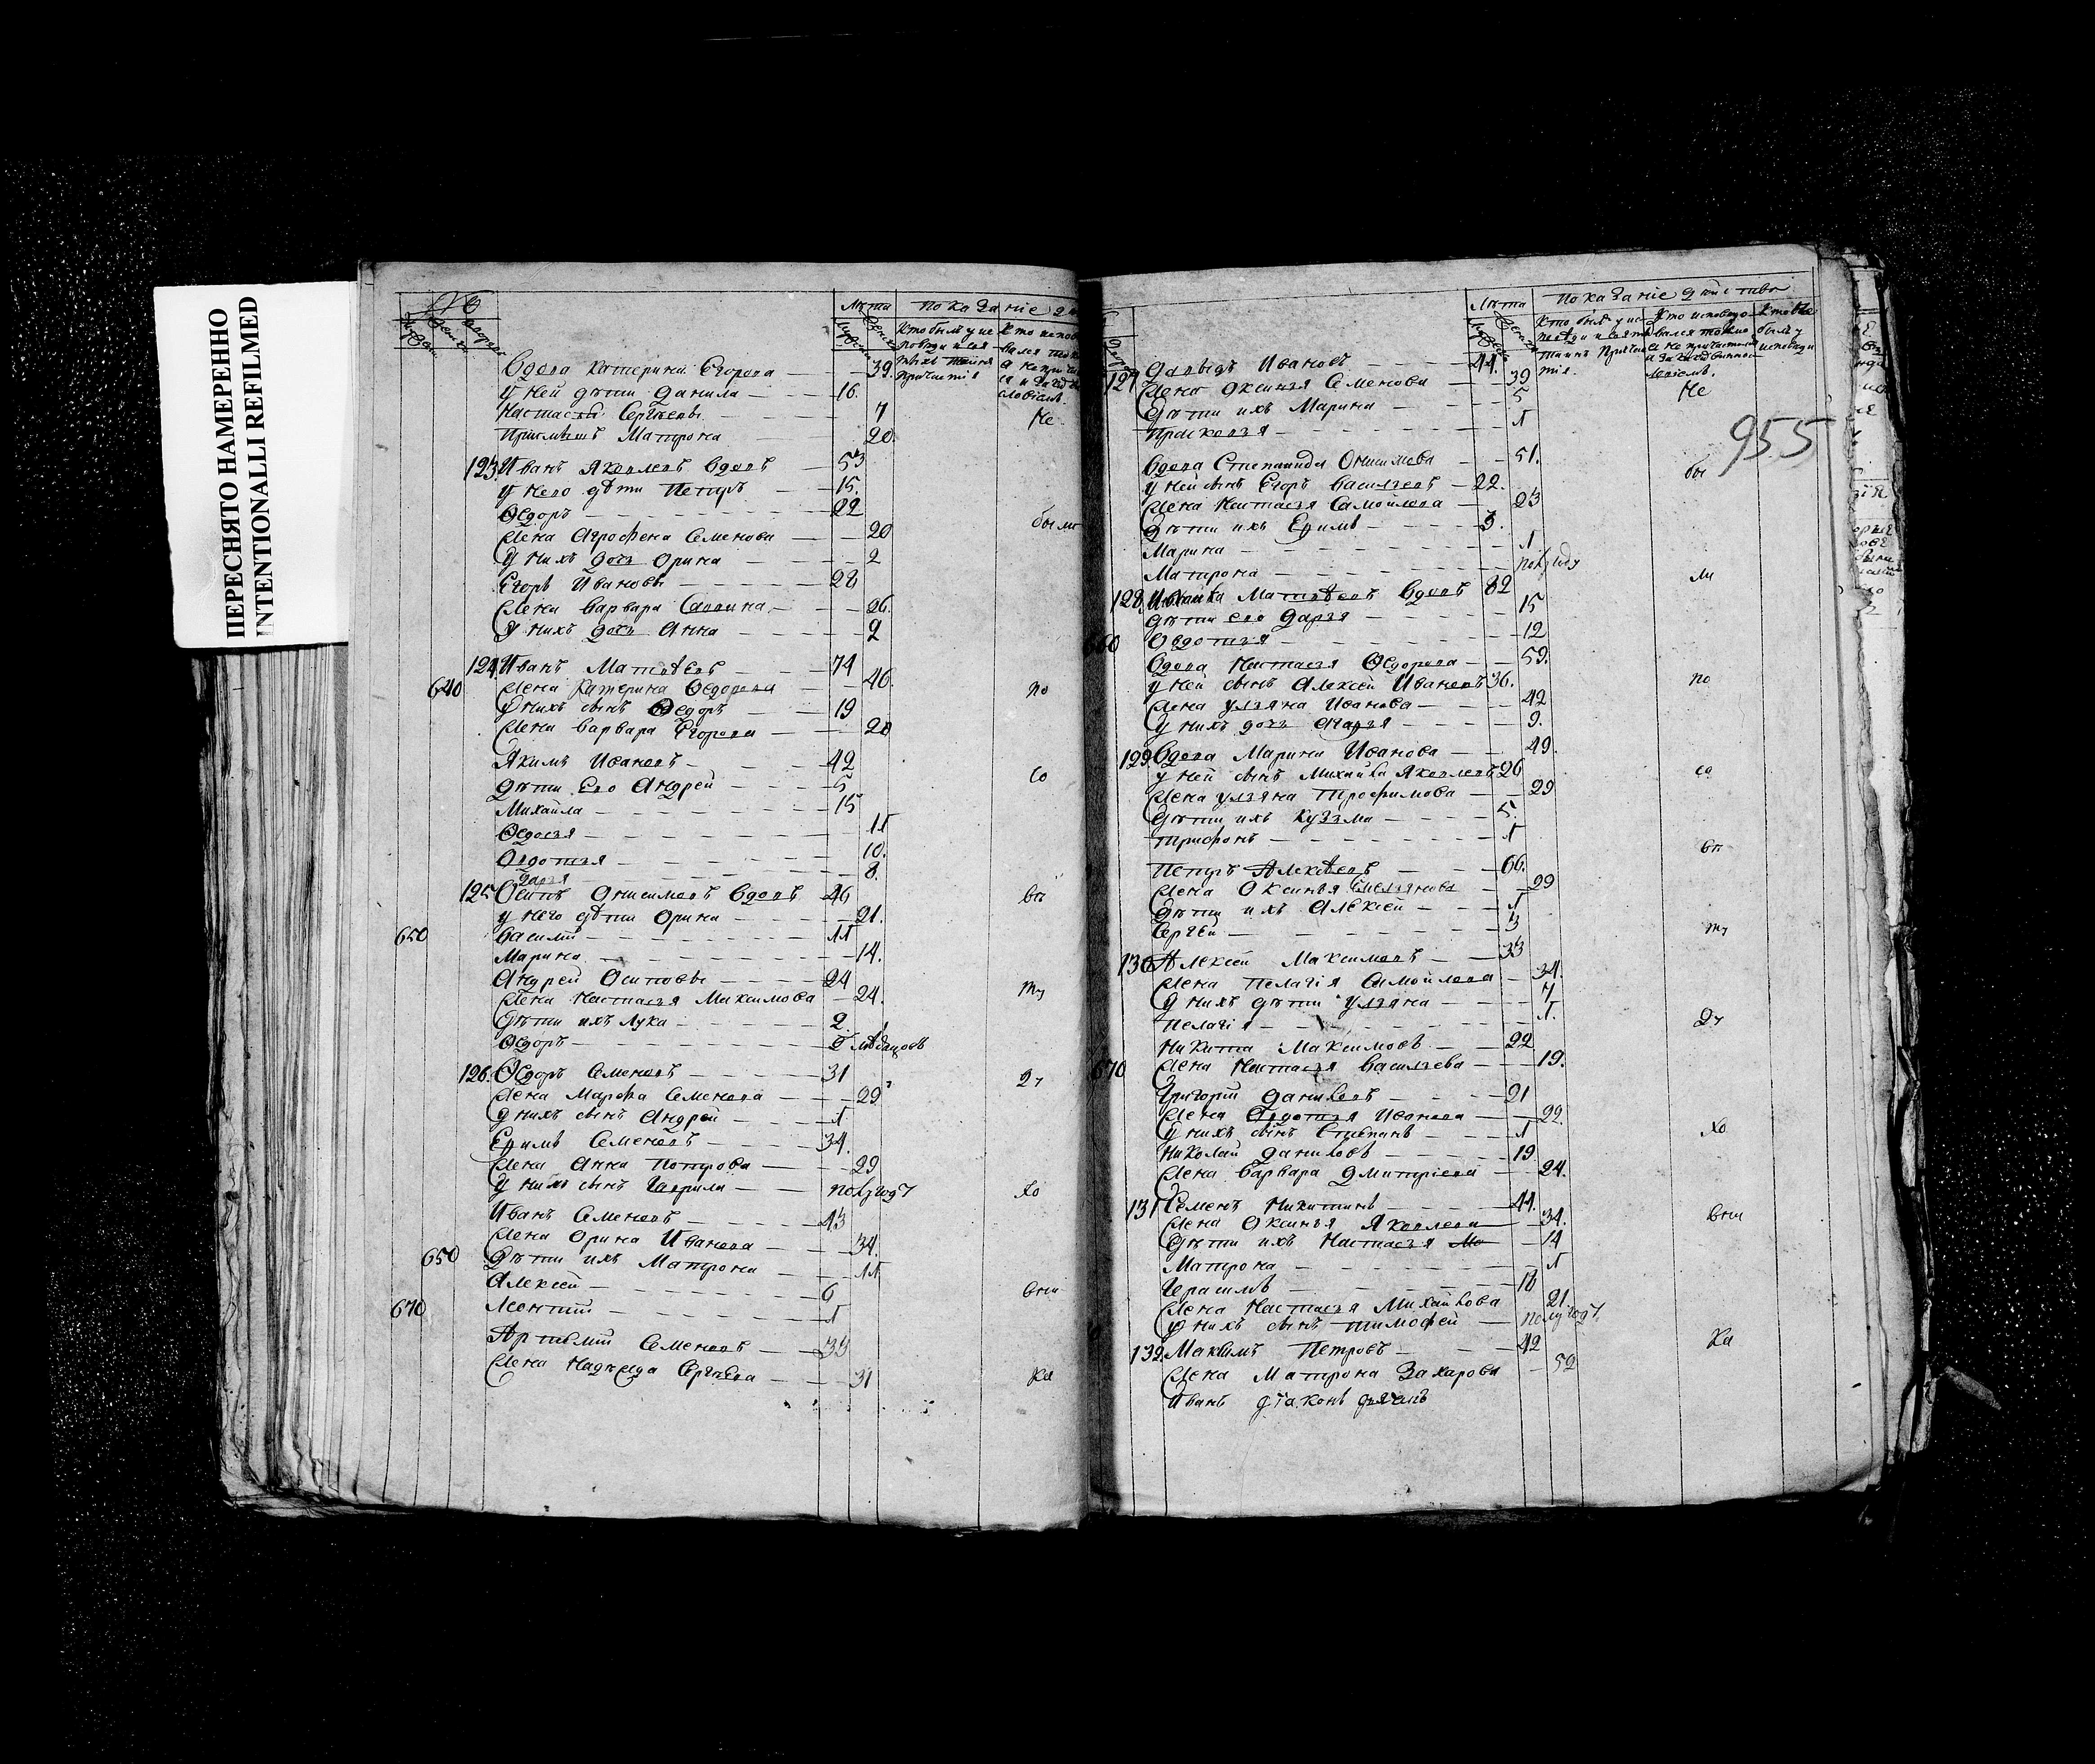 ПЕРЕСНЯТО НАМЕРЕННО
INTENTIONALLI REFILMED
№
Лѣта показаніе
Вдова Катерина Егорова — 39.
У ней дѣти Данила — 16.
Настасья Сергѣевы — 7 Не
Матрона 20.
123. Иванъ Яковлевъ вдовъ — 53
У него дѣти Петръ — 15.
Ѳедоръ — 22
Жена Агрофена Семенова — 20 были
У нихъ дочь Орина — 2
Егоръ Ивановъ — 28
Жена Варвара Савина — 26.
У нихъ дочь Анна — 2
124. Иванъ Матвѣевъ — 74
640 Жена Катерина Ѳедорова — 46. по
У нихъ сынъ Ѳедоръ — 19
Жена Варвара Егорова — 20
Якимъ Ивановъ — 42
Дѣти Его Андрей — 5 со
Михайла — 15
Ѳедосья — 11
Овдотья — 10.
Дарья 8.
125 Осипъ Онисимовъ вдовъ 46 вѣ
У него дѣти Орина — 21.
650 Василій — 11
Марина — 14.
Андрей Осиповъ — 24
Жена Настасья Максимова — 24. ту
Дѣти ихъ Лука — 2.
Ѳедоръ — 5
126. Ѳедоръ Семеновъ — 31
Жена Марфа Семенова — 29 ду
У нихъ сынъ Андрей — 1
Ефимъ Семеновъ — 34.
Жена Анна Петрова — 29
У нихъ сынъ Гаврила — полугоду хо
Иванъ Семеновъ — 43
Жена Орина Иванова — 34.
650 Дѣти ихъ Матрона — 11
Алексѣй — 6 вни
670 Леонтій — 1
Артемій Семеновъ — 33
Жена Надежда Сергѣева — 31 ка
Лѣта показаніе действа
955
127 Давыдъ Ивановъ — 44.
Жена Оксинья Семенова — 39 Не
Дѣти ихъ Марина — 5
Прасковья — 1
Вдова Степанида Онисимова — 51.
У ней сынъ Егоръ Васильевъ — 22. бы
Жена Настасья Самойлова — 23
Дѣти ихъ Ефимъ — 3.
Марина — 1
Матрона — полугоду
128. Матвѣевъ вдовъ 82 ли
Дѣти его Дарья — 15
660 Овдотья — 12
Вдова Настасья Ѳедорова — 59.
У ней сынъ Алексѣй Ивановъ 36. по
Жена Ульяна Иванова — 42
У нихъ дочь — 9.
129 Вдова Марина Иванова — 49.
У ней сынъ Михайла Яковлевъ 26 со
Жена Ульяна Трофимова — 29
Дѣти ихъ Кузьма — 5.
Трифонъ — 1
Петръ Алексѣевъ — 66. вѣ
Жена Оксинья Емельянова — 29
Дѣти ихъ Алексѣй — 1
Сергѣй — 3 ту
130 Алексѣй Максимовъ — 33
Жена Пелагія Самойлова — 34.
У нихъ дѣти Ульяна — 7
Пелагія — 1.
Никита Максимовъ — 22 ду
670 Жена Настасья Васильева — 19.
Григорій Даниловъ — 21
Жена Авдотья Иванова — 22.
У нихъ сынъ Степанъ — 1 хо
Николай Даниловъ — 19
Жена Варвара Дмитріева — 24.
131 Семенъ Никитинъ — 44.
Жена Оксинья Яковлева — 34. вни
Дѣти ихъ Настасья — 14
Матрона — 1
Герасимъ — 18
Жена Настасья Михайлова 21.
У нихъ сынъ Тимофей — полугоду
132 Максимъ Петровъ — 42 ка
Жена Матрона Захарова — 52
Иванъ діаконъ